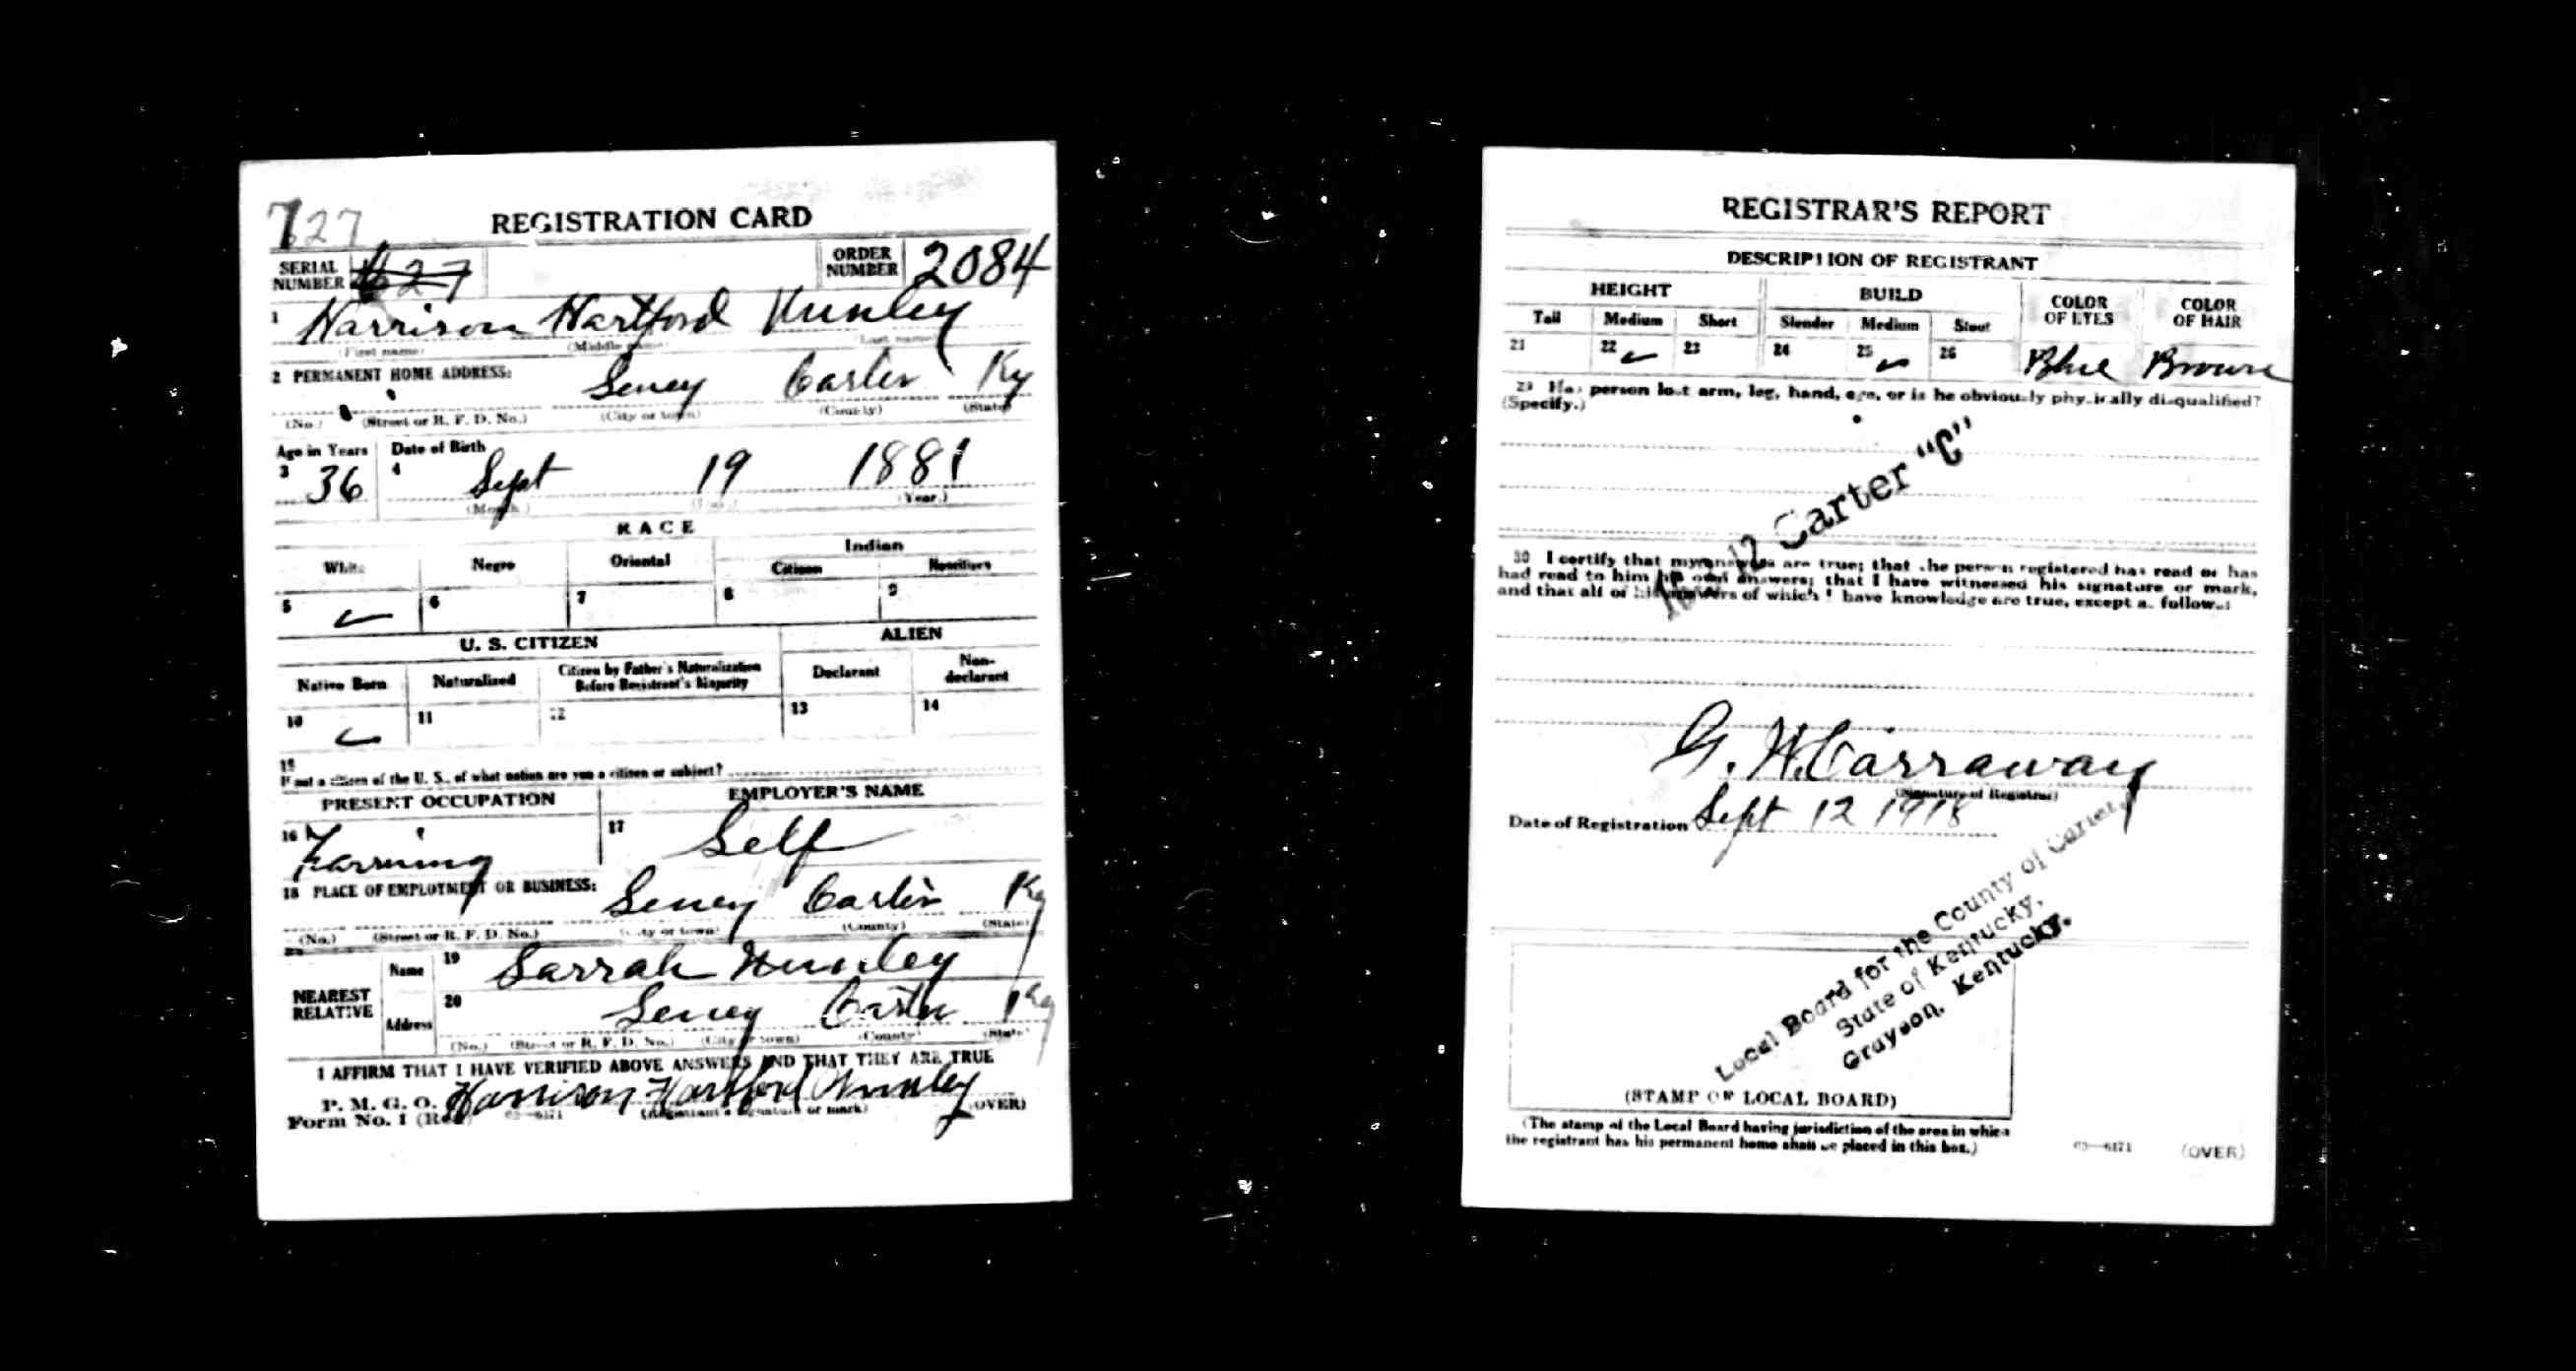 727
REGISTRATION CARD
SERIAL NUMBER 627 ORDER NUMBER 2084
1 Harrison Hartford Hunley
(First name) (Middle name) (Last name)
2 PERMANENT HOME ADDRESS: Seney Carter Ky
(No.) (Street or R. F. D. No.) (City or town) (County) (State)
Age in Years Date of Birth
3 36 4 Sept 19 1881
(Month.) (Day.) (Year.)
RACE
White Negro Oriental Indian
Citizen Noncitizen
5 6 7 8 9
U. S. CITIZEN ALIEN
Native Born Naturalized Citizen by Father's Naturalization Before Registrant's Majority Declarant Non-declarant
10 11 12 13 14
15
If not a citizen of the U. S., of what nation are you a citizen or subject?
PRESENT OCCUPATION EMPLOYER'S NAME
16 Farming 17 Self
18 PLACE OF EMPLOYMENT OR BUSINESS: Seney Carter Ky
(No.) (Street or R. F. D. No.) (City or town) (County) (State)
NEAREST RELATIVE Name 19 Sarrah Hunley
Address 20 Seney Carter Ky
(No.) (Street or R. F. D. No.) (City or town) (County) (State)
I AFFIRM THAT I HAVE VERIFIED ABOVE ANSWERS AND THAT THEY ARE TRUE
P. M. G. O.
Form No. 1 (Red) 03—6171 Harrison Hartford Hunley
(Registrant's signature or mark) (OVER)
REGISTRAR'S REPORT
DESCRIPTION OF REGISTRANT
HEIGHT BUILD COLOR OF EYES COLOR OF HAIR
Tall Medium Short Slender Medium Stout
21 22 23 24 25 26 Blue Brown
29 Has person lost arm, leg, hand, eye, or is he obviously physically disqualified?
(Specify.)
No 12 Carter "C"
30 I certify that my answers are true; that the person registered has read or has
had read to him his own answers; that I have witnessed his signature or mark,
and that all of his answers of which I have knowledge are true, except as follows:
G. W. Carraway
(Signature of Registrar)
Date of Registration Sept 12 1918
Local Board for the County of Carter,
State of Kentucky,
Grayson, Kentucky.
(STAMP OF LOCAL BOARD)
(The stamp of the Local Board having jurisdiction of the area in which
the registrant has his permanent home shall be placed in this box.)
03—6171 (OVER)